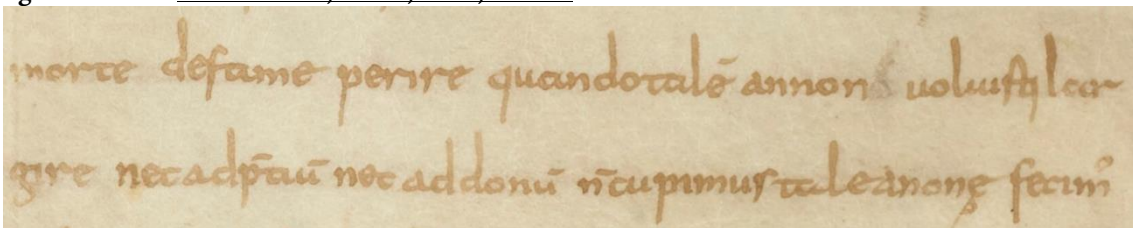 morte defame perire quandotalē annon uoluistiq lar
gire nec adp̄tiū nec addonū n̄cupimus taleanonę fecim᾽